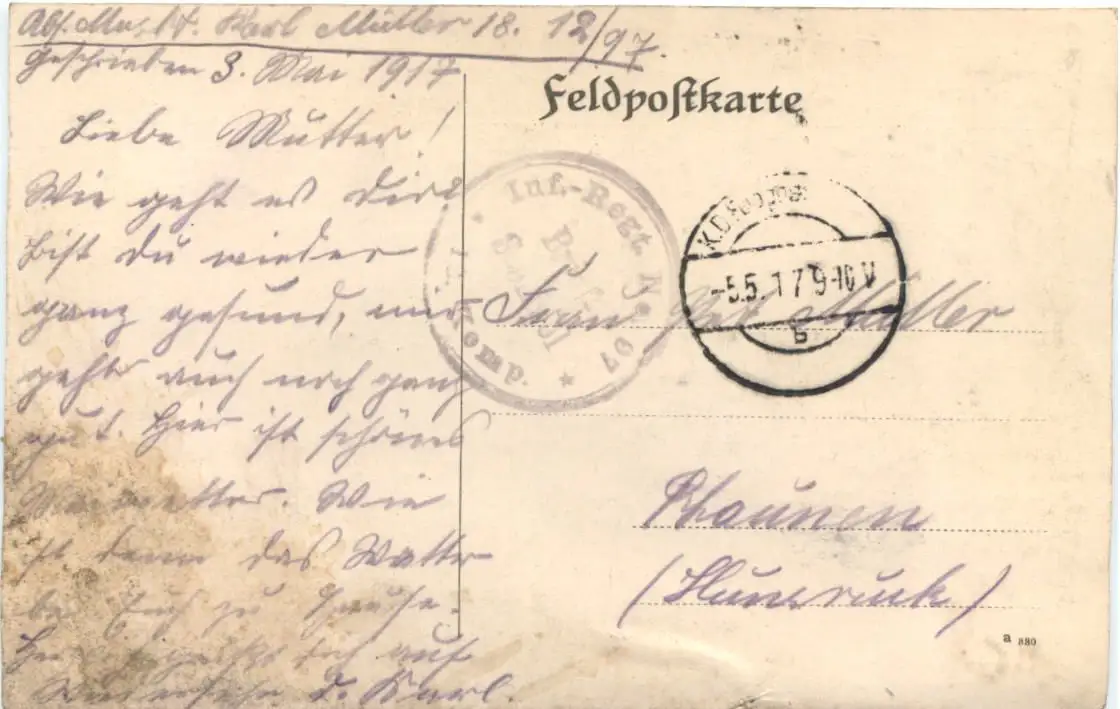 Abs. Mu. Karl Müller 18. 12/97.
Geschrieben 3. Mai 1917
Liebe Mutter!
Wie geht es Dir?
Bist du wieder
ganz gesund, mir
geht's auch noch ganz
gut. Hier ist schönes
Wie
ist denn das Wetter
bei Euch zu Hause.
auf
Wiedersehn d. Karl.
Feldpostkarte
Inf.-Regt. No 97
Komp.
K.D. Feldpost
-5.5.17 9-10 V
b
Frau Müller
Rhaunen
(Hunsrück)
a 880